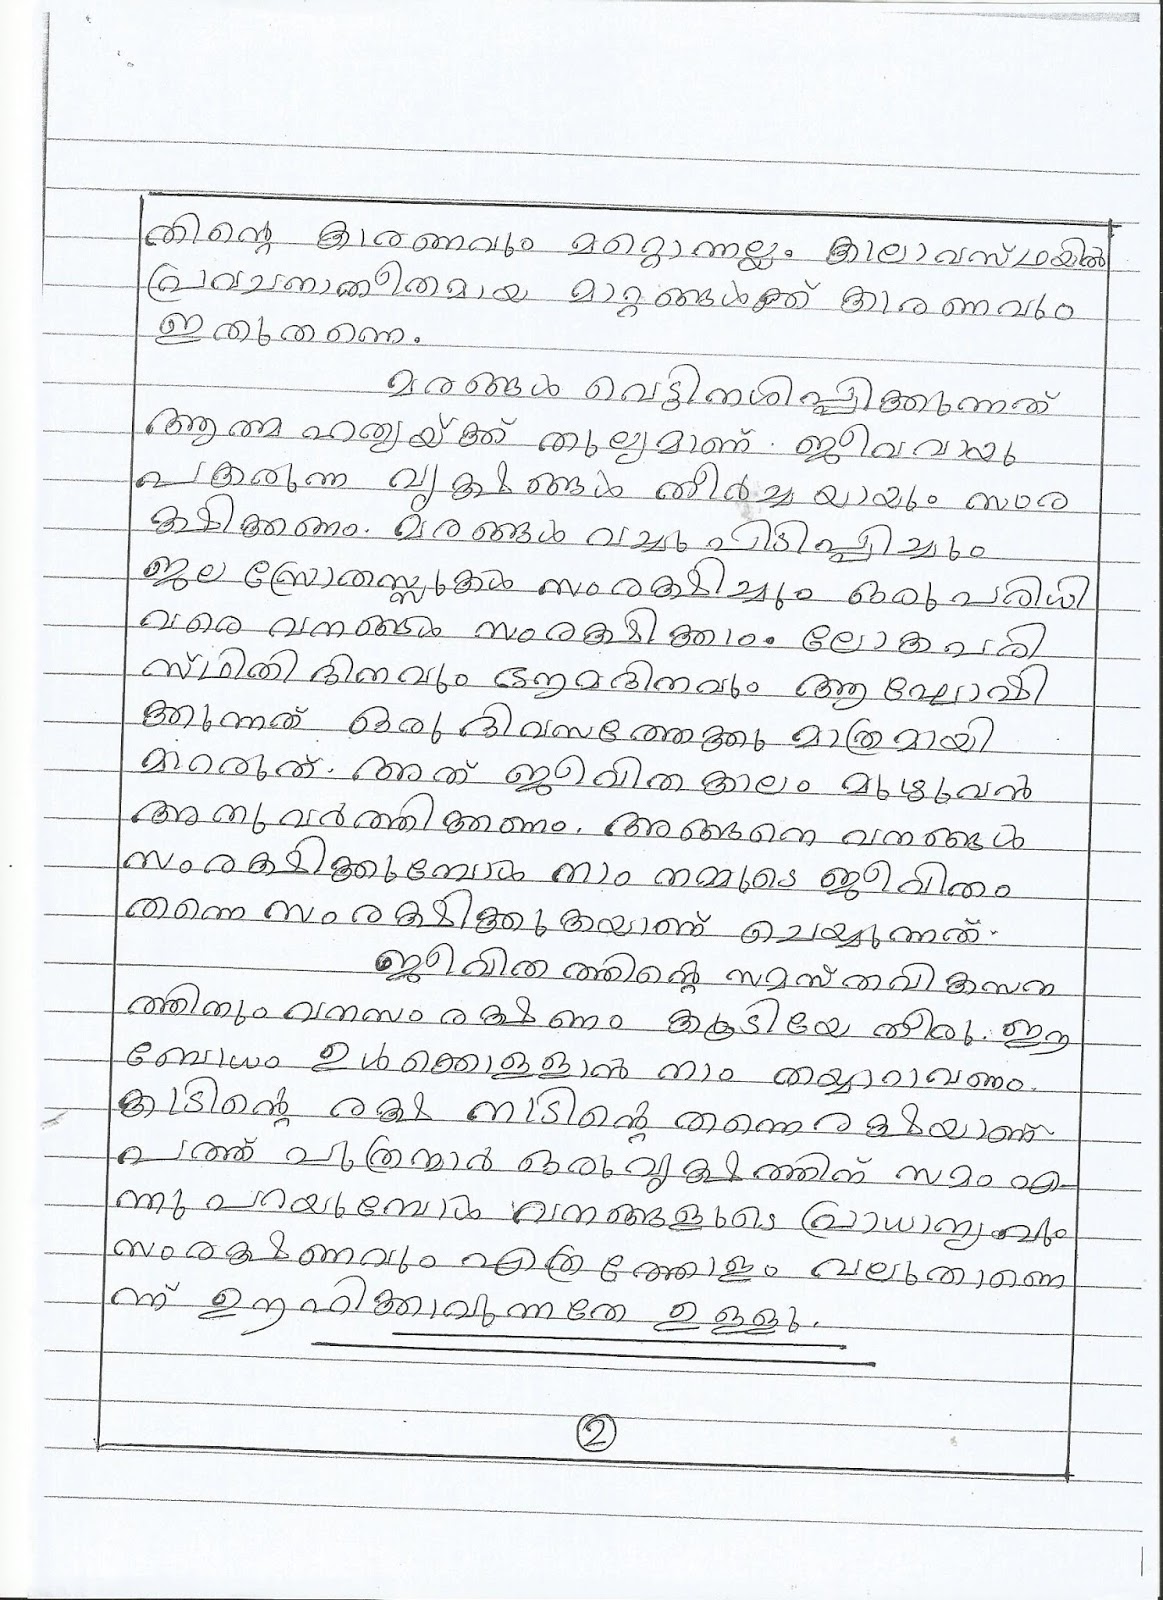 തിന്റെ കാരണവും മറ്റൊന്നല്ല. കാലാവസ്ഥയിൽ
പ്രവചനാതീതമായ മാറ്റങ്ങൾക്ക് കാരണവും
ഇതുതന്നെ.
മരങ്ങൾ വെട്ടിനശിപ്പിക്കുന്നത്
ആത്മഹത്യയ്ക്ക് തുല്യമാണ്. ജീവവായു
പകരുന്ന വൃക്ഷങ്ങൾ തീർച്ചയായും സംര
ക്ഷിക്കണം. മരങ്ങൾ വച്ചുപിടിപ്പിച്ചും
ജലസ്രോതസ്സുകൾ സംരക്ഷിച്ചും ഒരുപരിധി
വരെ വനങ്ങൾ സംരക്ഷിക്കാം. ലോകപരി
സ്ഥിതിദിനവും ഭൗമദിനവും ആഘോഷി
ക്കുന്നത് ഒരുദിവസത്തേക്കു മാത്രമായി
മാറരുത്. അത് ജീവിതകാലം മുഴുവൻ
അനുവർത്തിക്കണം. അങ്ങനെ വനങ്ങൾ
സംരക്ഷിക്കുമ്പോൾ നാം നമ്മുടെ ജീവിതം
തന്നെ സംരക്ഷിക്കുകയാണ് ചെയ്യുന്നത്.
ജീവിതത്തിന്റെ സമസ്തവികസന
ത്തിനും വനസംരക്ഷണം കൂടിയേ തീരൂ. ഈ
ബോധം ഉൾക്കൊള്ളാൻ നാം തയ്യാറാവണം.
കാടിന്റെ രക്ഷ നാടിന്റെ തന്നെരക്ഷയാണ്
പത്ത് പുത്രന്മാർ ഒരുവൃക്ഷത്തിന് സമം എ-
ന്നു പറയുമ്പോൾ വനങ്ങളുടെ പ്രാധാന്യവും
സംരക്ഷണവും എത്രത്തോളം വലുതാണെ
ന്ന് ഊഹിക്കാവുന്നതേ ഉള്ളൂ.
2